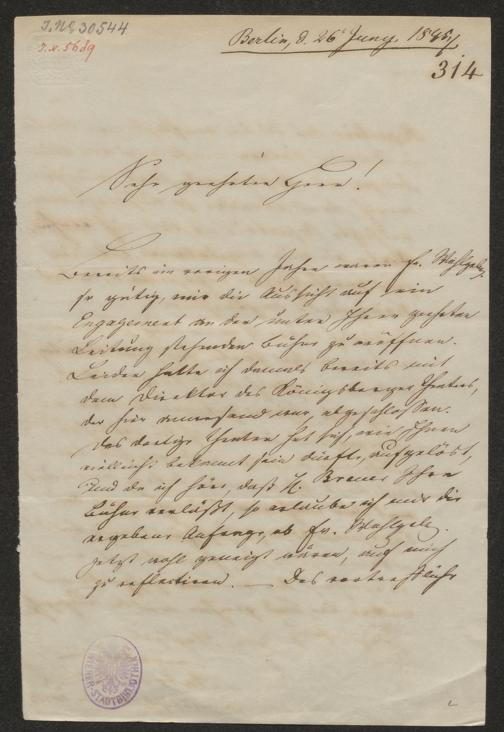 J. N. 30544
Berlin, d. 26t Juny. 1845
314
Sehr geehrter Herr!
Bereits im vorigen Jahre waren Ew. Wohlgeb.
so gütig, mir die Aussicht auf ein
Engagement an der unter Ihrer geehrten
Leitung stehenden Bühne zu eröffnen.
Leider hatte ich damals bereits mit
dem Direktor des Königsberger Theaters,
der hier anwesend war, abgeschlossen.
Das dortige Theater hat sich, wie Ihnen
vielleicht bekannt sein dürfte, aufgelöst,
und da ich höre, daß H. Ihre
Bühne verläßt, so erlaube ich mir die
ergebene Anfrage, ob Ew. Wohlgeb.
jetzt wohl geneigt wären, auf mich
zu reflectiren. — Das vortreffliche
WIENER STADTBIBLIOTHEK